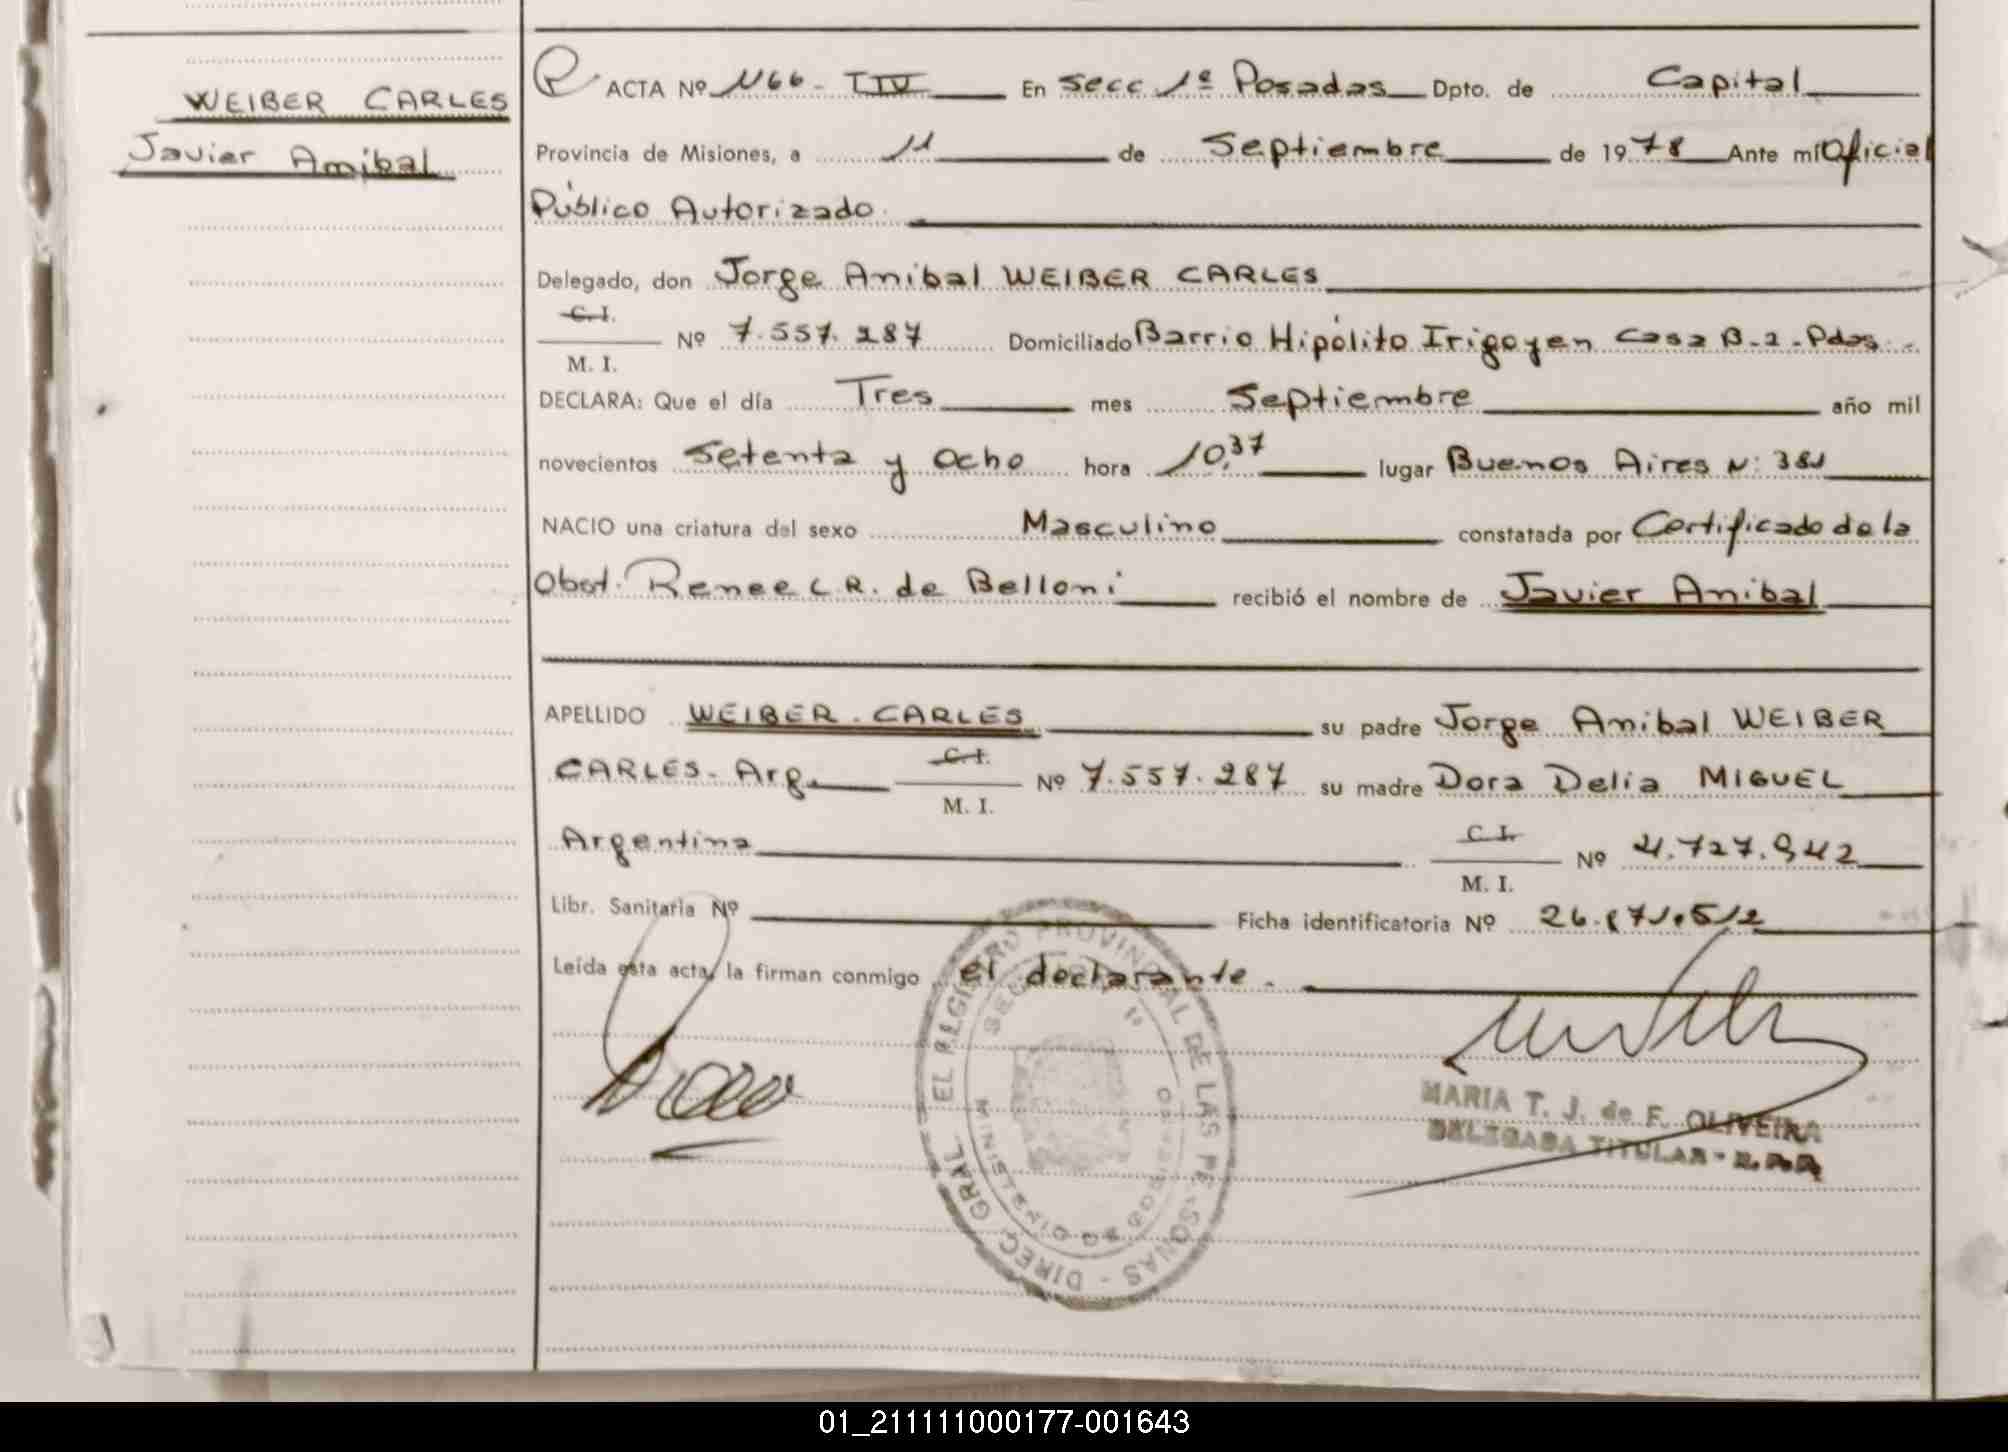 WEIBER CARLES
Javier Anibal
ACTA Nº 1166 - T IV En Secc 1º Posadas Dpto. de Capital
Provincia de Misiones, a 11 de Septiembre de 1978 Ante mí Oficial
Público Autorizado.
Delegado, don Jorge Anibal WEIBER CARLES
C. I.
M. I. Nº 7.557.287 Domiciliado Barrio Hipólito Irigoyen Casa B-2-Pdas.-
DECLARA: Que el día Tres mes Septiembre año mil
novecientos Setenta y Ocho hora 10,37 lugar Buenos Aires N: 381
NACIO una criatura del sexo Masculino constatada por Certificado de la
Obst. Renee L R. de Belloni recibió el nombre de Javier Anibal
APELLIDO WEIBER CARLES su padre Jorge Anibal WEIBER
CARLES- Arg. C. I. M. I. Nº 7.557.287 su madre Dora Delia MIGUEL
Argentina C. I. M. I. Nº 4.727.942
Libr. Sanitaria Nº Ficha identificatoria Nº 26.871.512
Leída esta acta, la firman conmigo el declarante.
DIREC. GRAL. EL REGISTRO PROVINCIAL DE LAS PERSONAS -
MARIA T. J. de F. OLIVEIRA
DELEGADA TITULAR - R.P.P.
01_211111000177-001643